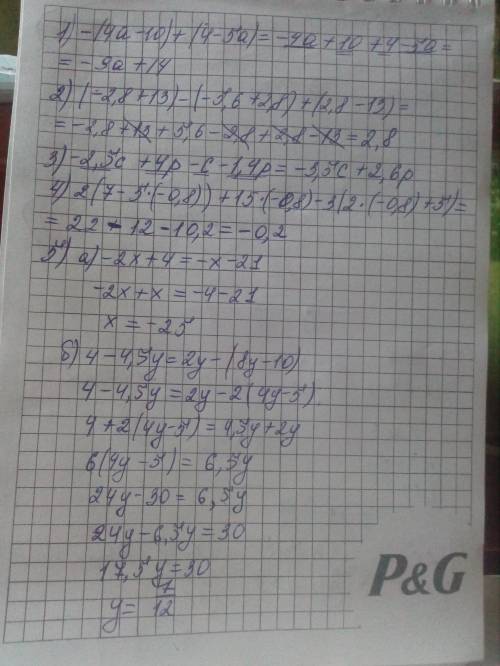 1) -(4a-10)+(4-5a)=-4a+10+4-5a=
=-9a+14
2) (-2,8+13)-(-5,6+2,8)+(2,8-13)=
=-2,8+13+5,6-2,8+2,8-13=2,8
3) -2,5c+4p-c-1,4p=-3,5c+2,6p
4) 2(7-5·(-0,8))+15·(-0,8)-3(2·(-0,8)+5)=
=22-12-10,2=-0,2
5) а) -2x+4=-x-21
-2x+x=-4-21
x=-25
б) 4-4,5y=2y-(8y-10)
4-4,5y=2y-2(4y-5)
4+2(4y-5)=4,5y+2y
6(4y-5)=6,5y
24y-30=6,5y
24y-6,5y=30
17,5y=30
y=7/12
P&G